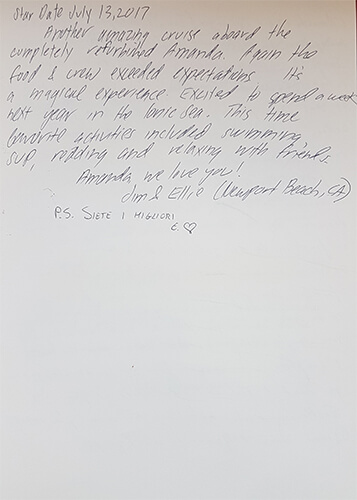 Star Date July 13, 2017
Another amazing cruise aboard the
completely refurbished Amanda. Again the
food & crew exceeded expectations. It's
a magical experience. Excited to spend a week
next year in the Ionic Sea. This time
favorite activities included swimming
SUP, reading and relaxing with friends.
Amanda we love you!
Jim & Ellie (Newport Beach, CA)
P.S. SIETE I MIGLIORI
E. ♡